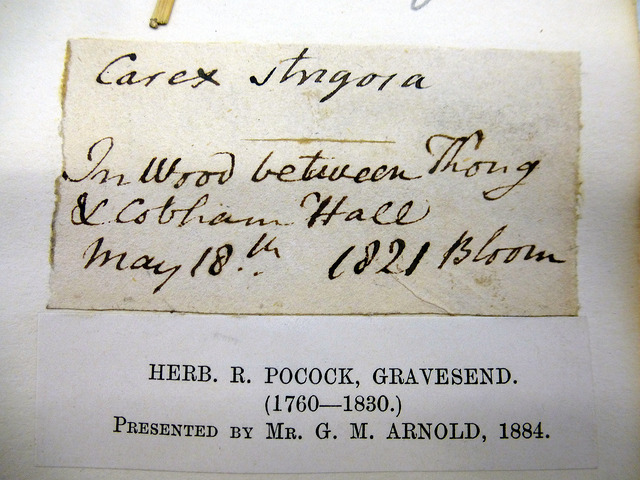 Carex strigosa
In Wood between Thong
& Cobham Hall
May 18.th 1821 Bloom
HERB. R. POCOCK, GRAVESEND.
(1760—1830.)
PRESENTED BY MR. G. M. ARNOLD, 1884.